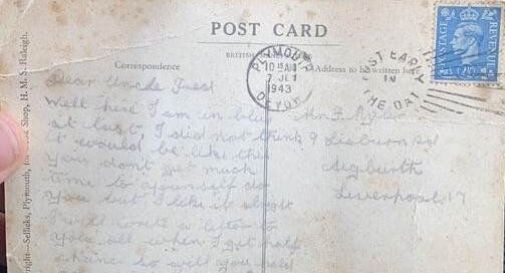 POST CARD
BRITISH
Correspondence
Address to be written here
PLYMOUTH
10 15 AM
7 JE
1943
DEVON
POST EARLY
IN
THE DAY
POSTAGE
REVENUE
Dear Uncle Fred
Well here I am in blue
at last, I did not think
it would be like this
You don't get much
time to yourself as
You but I like it alright
I will write a letter to
you all when I get half
a chance so will you
Mr F.
9 Lisburn Rd
Aigburth
Liverpool 17
right—Sellicks, Plymouth, Shop, H. M. S. Raleigh.